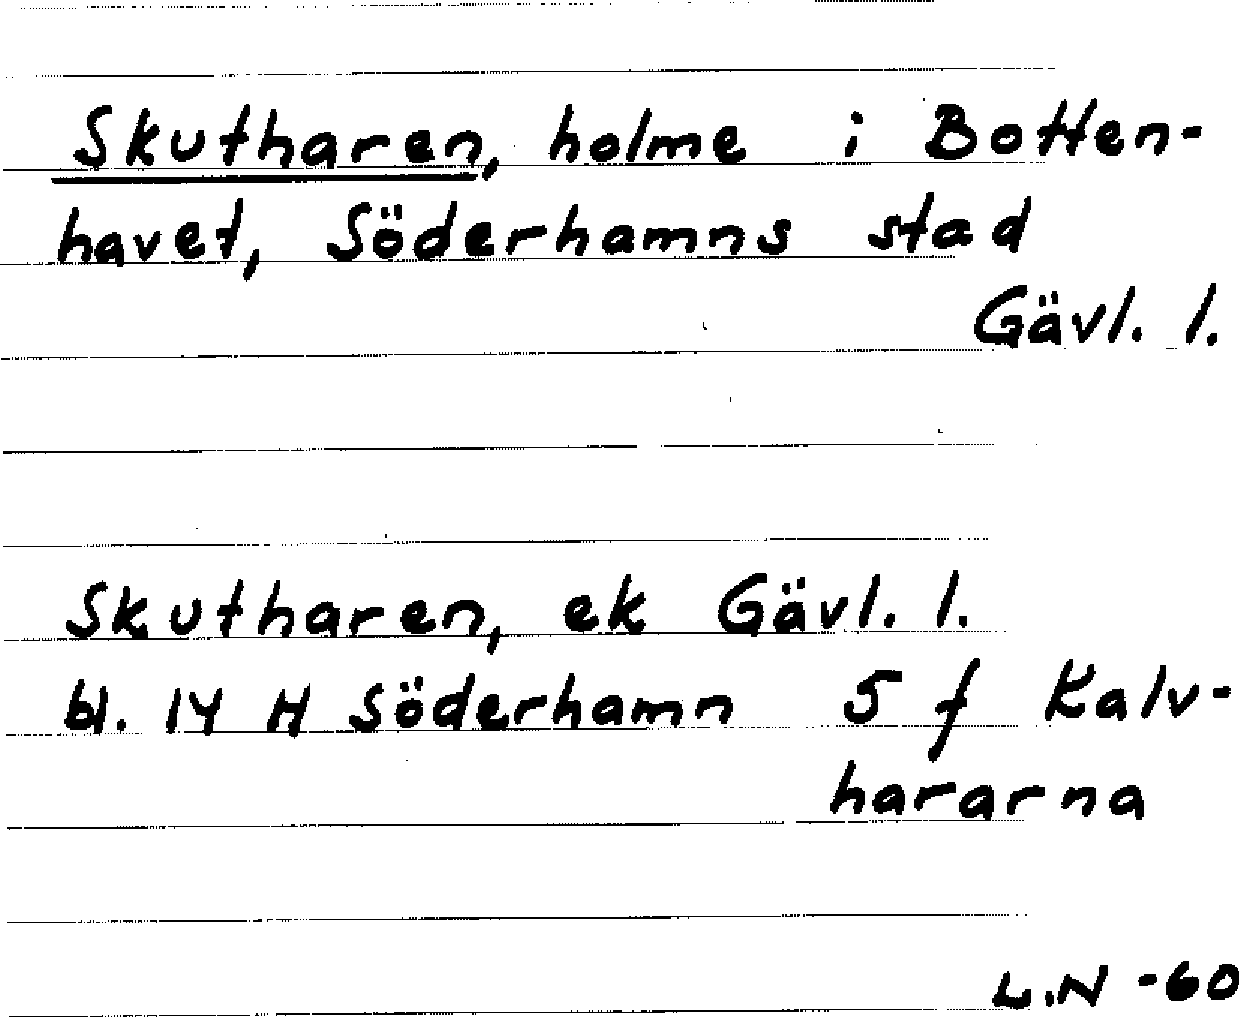 Skutharen, holme i Botten-
havet, Söderhamns stad
Gävl. l.
Skutharen, ek Gävl. l.
bl. 14 H Söderhamn 5 f Kalv-
hararna
L.N -60